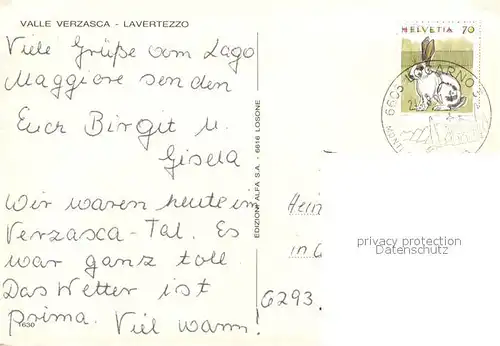 VALLE VERZASCA - LAVERTEZZO
Viele Grüße vom Lago
Maggiore senden
Euch Birgit u.
Gisela
Wir waren heute im
Verzasca-Tal. Es
war ganz toll.
Das Wetter ist
prima. Viel warm!
1630
EDIZIONI ALFA S.A. - 6616 LOSONE
HELVETIA 70
6605 LOCARNO
Hein
in G
6293.
privacy protection
Datenschutz